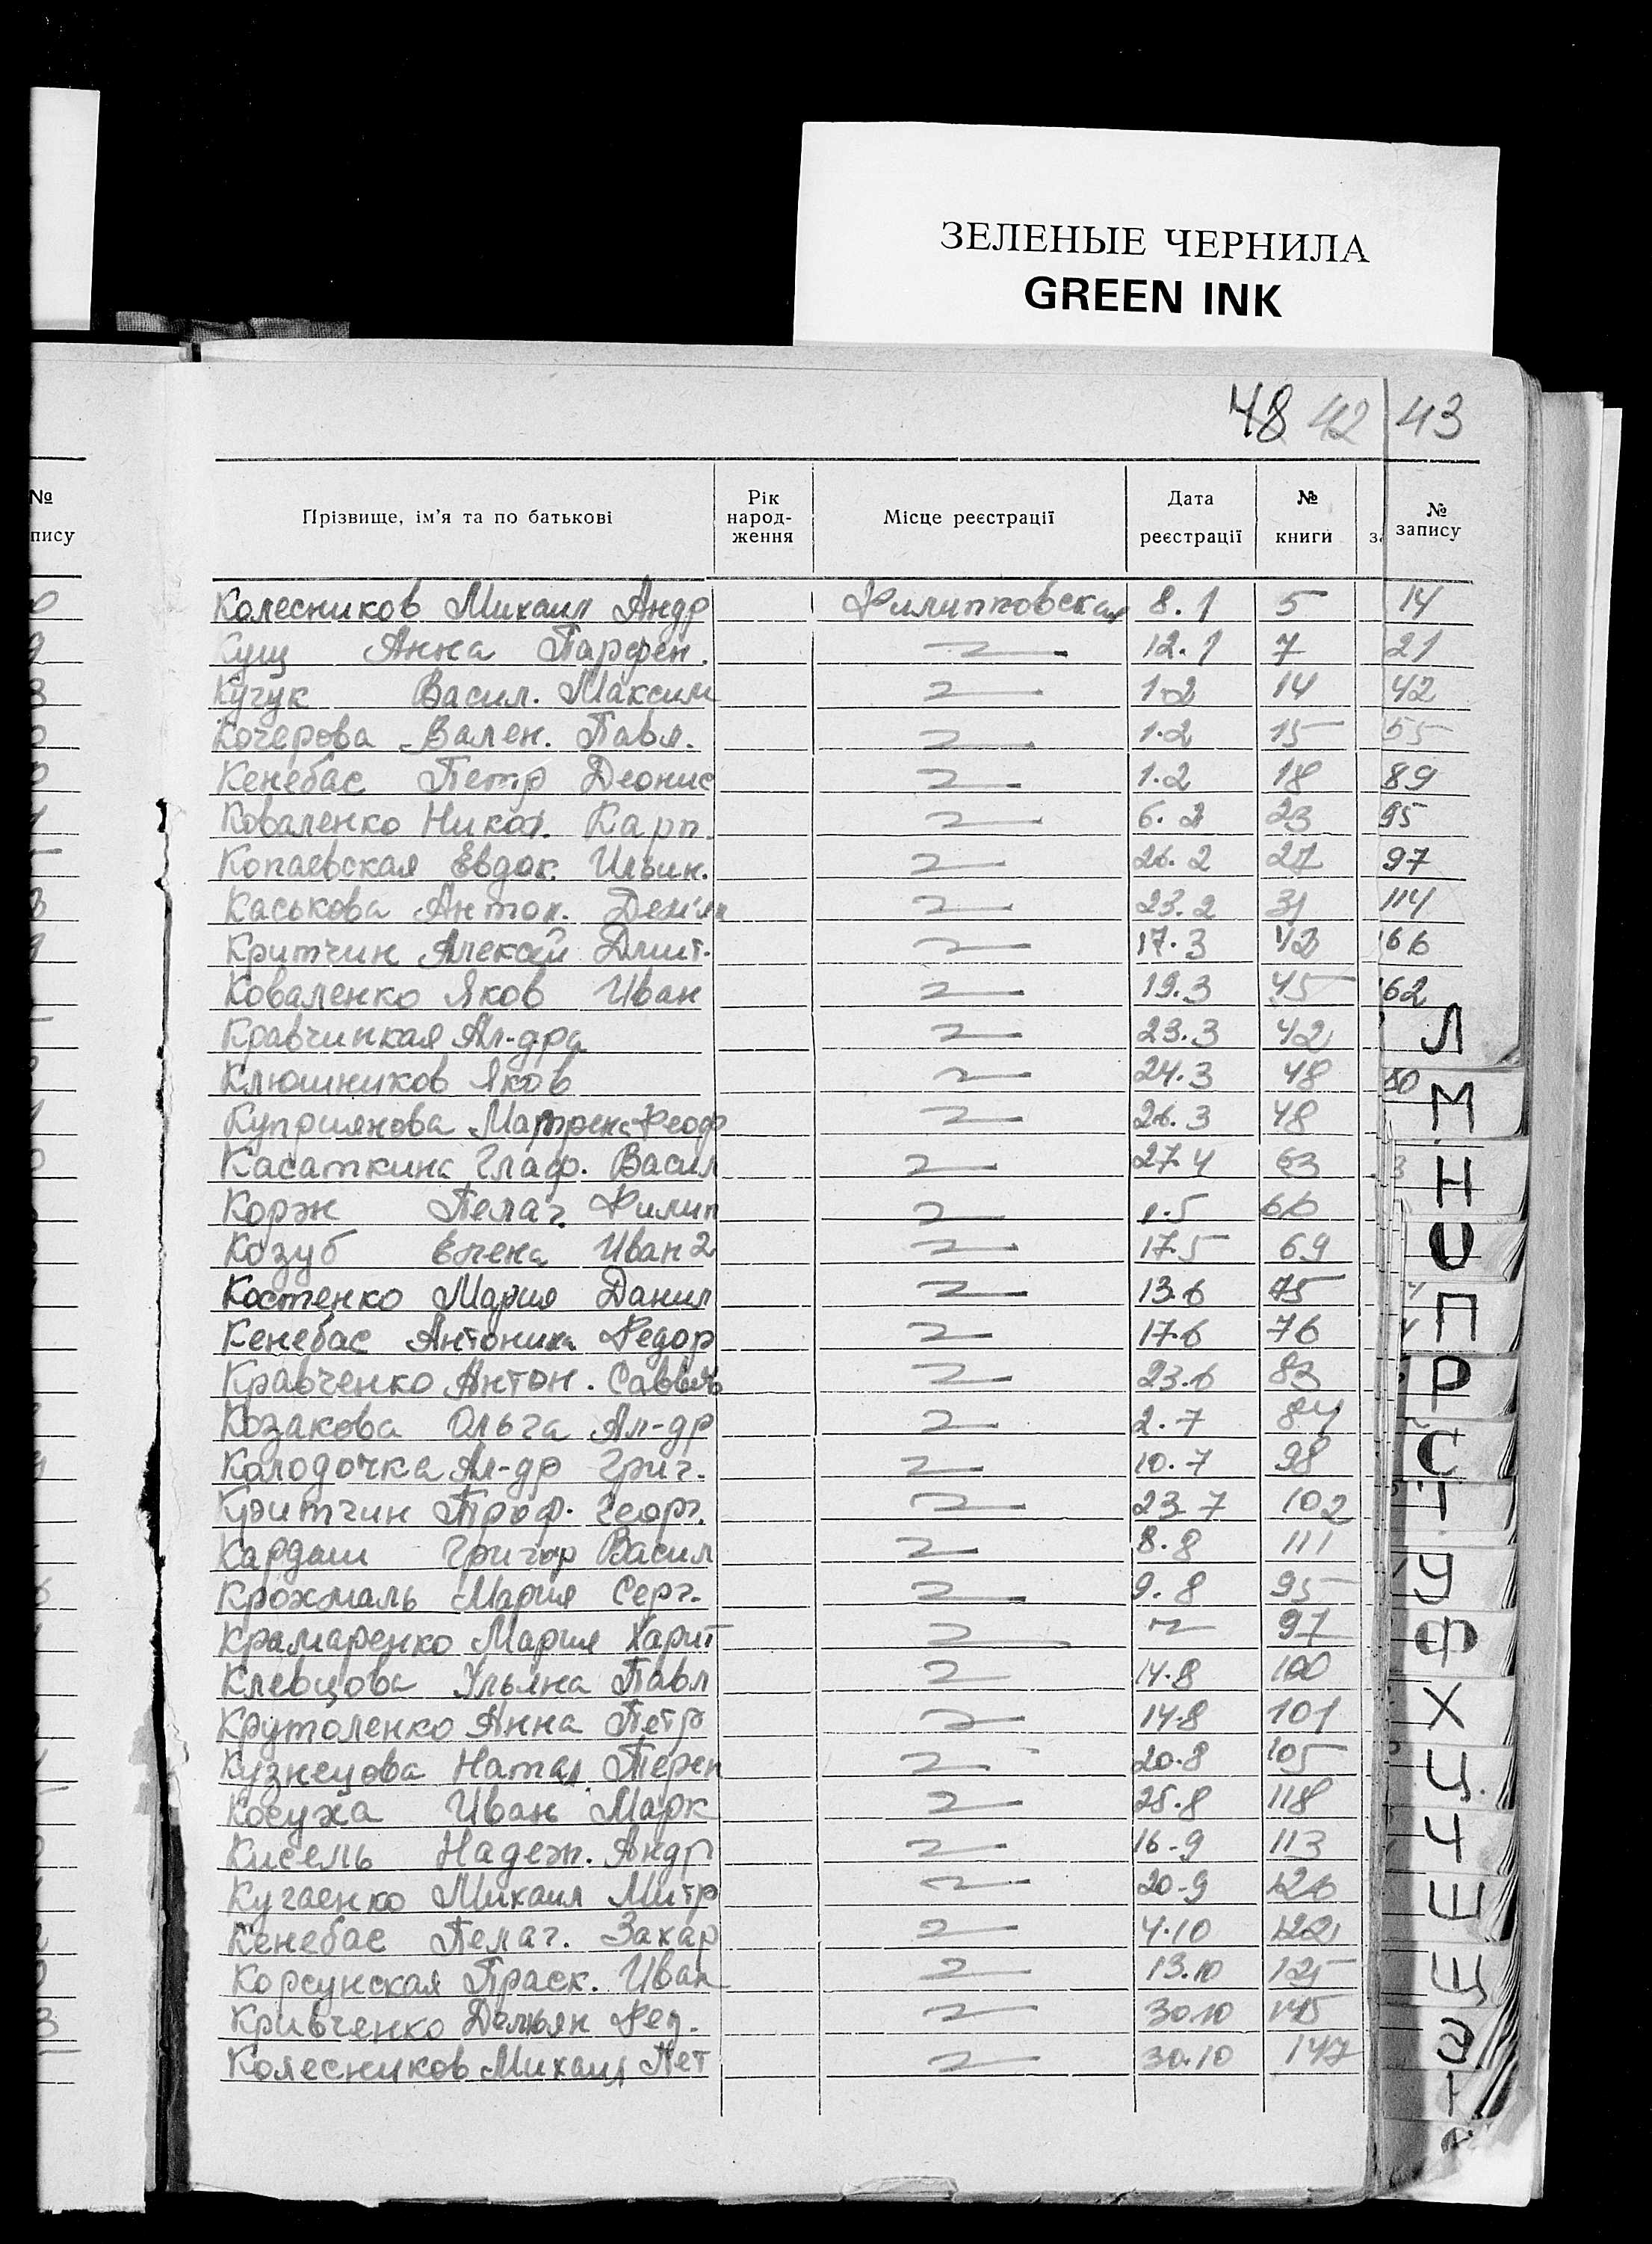 ЗЕЛЕНЫЕ ЧЕРНИЛА
GREEN INK
48 42 43
№ пису
Прізвище, ім'я та по батькові Рік народження Місце реєстрації Дата реєстрації № книги № запису
Колесников Михаил Андр Филипповская 8.1 5 14
Кущ Анна Парфен. 12.1 7 21
Кучук Васил. Максим 1.2 14 42
Кочерова Вален. Павл. 1.2 15 55
Кенебас Петр Деонис 1.2 18 89
Коваленко Никол. Карп. 6.2 23 95
Копаевская Евдок. Ильин. 26.2 27 97
Каськова Антон. Дем'ян 23.2 31 114
Критчин Алексей Дмит. 17.3 66
Коваленко Яков Иван 19.3 45 62
Кравчинкая Ал-дра 23.3 42
Клюшников Яков 24.3 48 80
Куприянова Матрена Феоф 26.3 48
Касаткина Глаф. Васил 27.4 63
Корж Пелаг. Филип 1.5 66
Козуб Елена Иван 17.5 69
Костенко Мария Данил 13.6 75
Кенебас Антонина Федор 17.6 76
Кравченко Антон. 23.6 83
Козакова Ольга Ал-др 2.7 84
Колодочка Ал-др Григ. 10.7 98
Критчин Проф. Георг. 23.7 102
Кардаш Григор Васил 8.8 111
Крохмаль Мария Серг. 9.8 95
Крамаренко Мария Харит 97
Клевцова Ульяна Павл 14.8 100
Крутоленко Анна Петр 14.8 101
Кузнецова Натал. Терен 20.8 105
Косуха Иван Марк 25.8 118
Кисель Надеж. Андр 16.9 113
Кугаенко Михаил Митр 20.9 126
Кенебас Пелаг. Захар 4.10 122
Корсунская Праск. Иван 13.10 125
Кривченко Демьян Фед. 30.10 145
Колесников Михаил Пет 30.10 147
Л
М
Н
О
П
Р
С
Т
У
Ф
Х
Ц
Ч
Ш
Щ